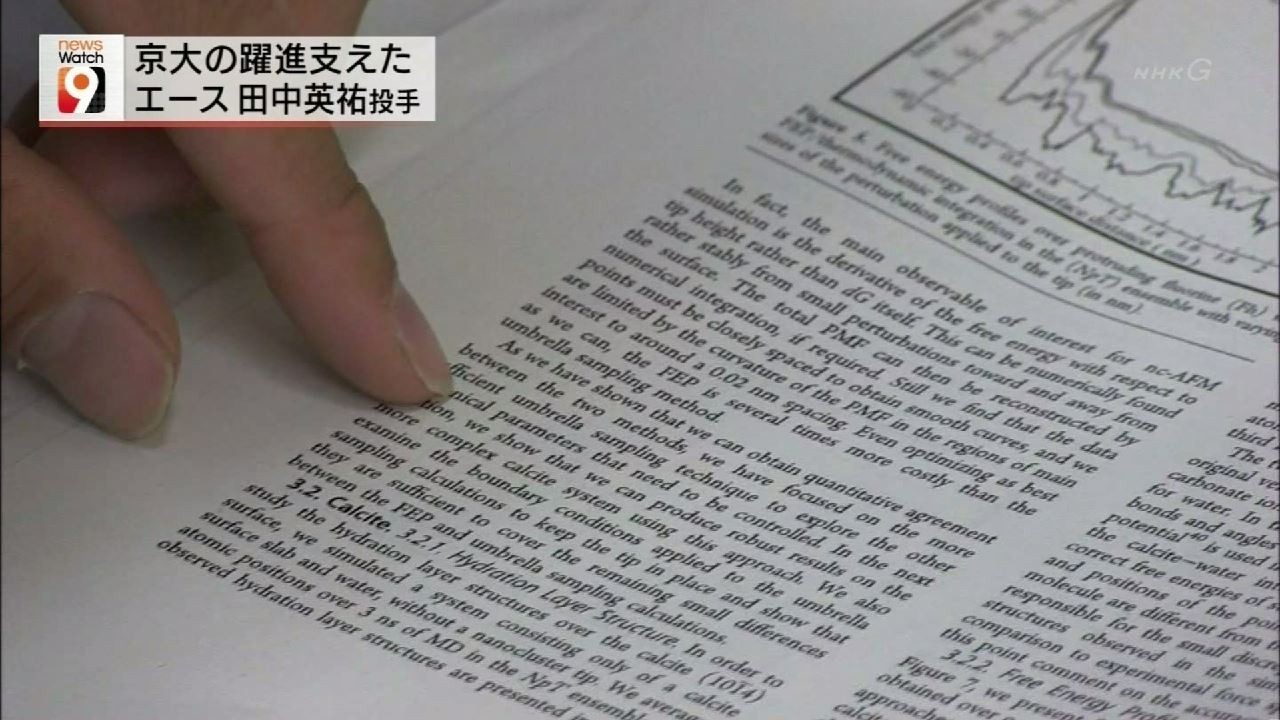 news
Watch
9
京大の躍進支えた
エース 田中英祐投手
NHK G
tip surface distance (nm)
Figure 6. Free energy profiles over protruding fluorine (Fh)
FEP/thermodynamic integration in the (NpT) ensemble with
sizes of the perturbation applied to the tip (in nm).
In fact, the main observable of interest for nc-AFM
simulation is the derivative of the free energy with respect to
tip height rather than dG itself. This can be numerically found
rather stably from small perturbations toward and away from
the surface. The total PMF can then be reconstructed by
numerical integration, if required. Still we find that the data
points must be closely spaced to obtain smooth curves, and we
are limited by the curvature of the PMF in the regions of main
interest to around a 0.02 nm spacing. Even optimizing as best
as we can, the FEP is several times more costly than the
umbrella sampling method.
As we have shown that we can obtain quantitative agreement
between the two methods, we have focused on the more
fficient umbrella sampling technique to explore the other
nical parameters that need to be controlled. In the next
tion, we show that we can produce robust results on the
more complex calcite system using this approach. We also
examine the boundary conditions applied to the umbrella
sampling calculations to keep the tip in place and show that
they are sufficient to cover the remaining small differences
between the FEP and umbrella sampling calculations.
3.2. Calcite. 3.2.1. Hydration Layer Structure. In order to
study the hydration layer structures over the calcite (1014)
surface, we simulated a system consisting only of a calcite
surface slab and water, without a nanocluster tip. We average
atomic positions over 3 ns of MD in the NpT ensemble
observed hydration layer structures are presented in
third
The
original
carbonate ion
for water. In
bonds and angles
potential⁴⁰ is used
the calcite–water
correct free energies of
and positions of the
molecule are different from
responsible for the small
structures observed in the
comparison to experimental force
this point comment on the
3.2.2. Free Energy
Figure 7, we present
obtained over
approached
calcite